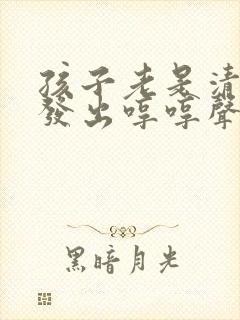 孩子老是清
發出哼哼聲
黑暗月光